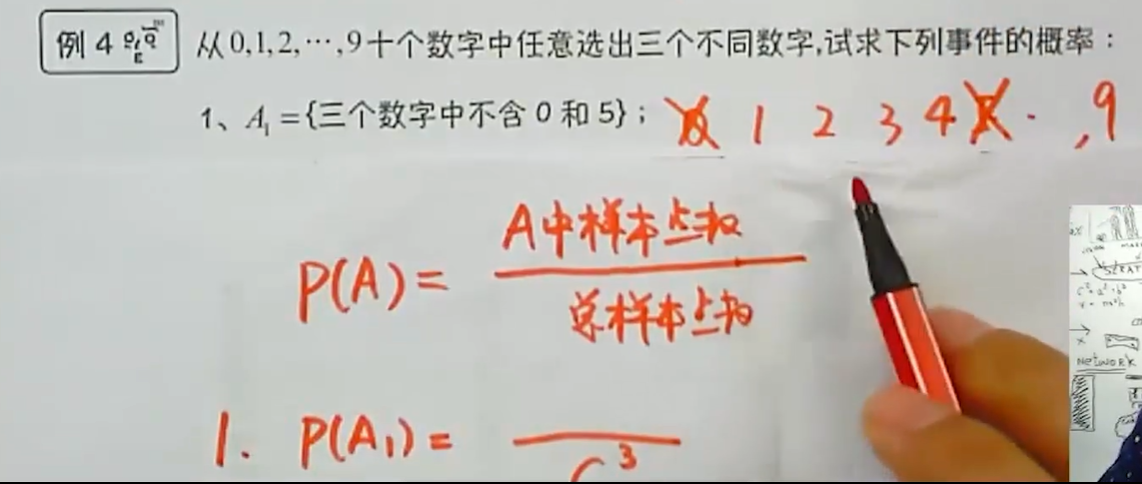 例 4 从 0,1,2,…,9 十个数字中任意选出三个不同数字,试求下列事件的概率：
1、A₁={三个数字中不含 0 和 5}； 0 1 2 3 4 5 · ,9
P(A)= A中样本点数
总样本点数
1. P(A₁)= C³
NETWORK